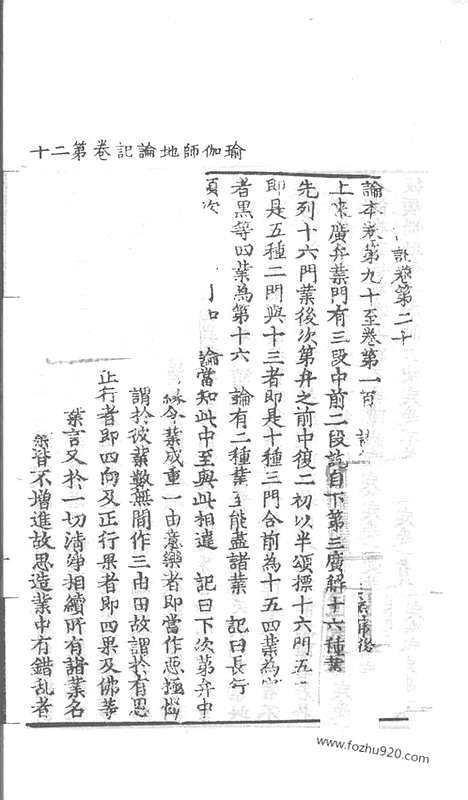 瑜伽師地論記卷第二十
記卷第二十
論本卷第九十至卷第一百
上來廣弁業門有三段中前二段訖自下第三廣解十六種業
先列十六門業後次第弁之前中復二初以半頌標十六門五
即是五種二門與十三者即是十種三門合前為十五四業為
者黑等四業為第十六 論有二種業至能盡諸業 記曰長行
頌次 論當知此中至與此相違 記曰下次第弁中
緣令業成重一由意樂者即當作惡極惱
謂於彼業數無間作三由田故謂於有恩
正行者即四向及正行果者即四果及佛等
業言又於一切清淨相續所有諸業名
業皆不增進故思造業中有錯乱者
www.fozhu920.com